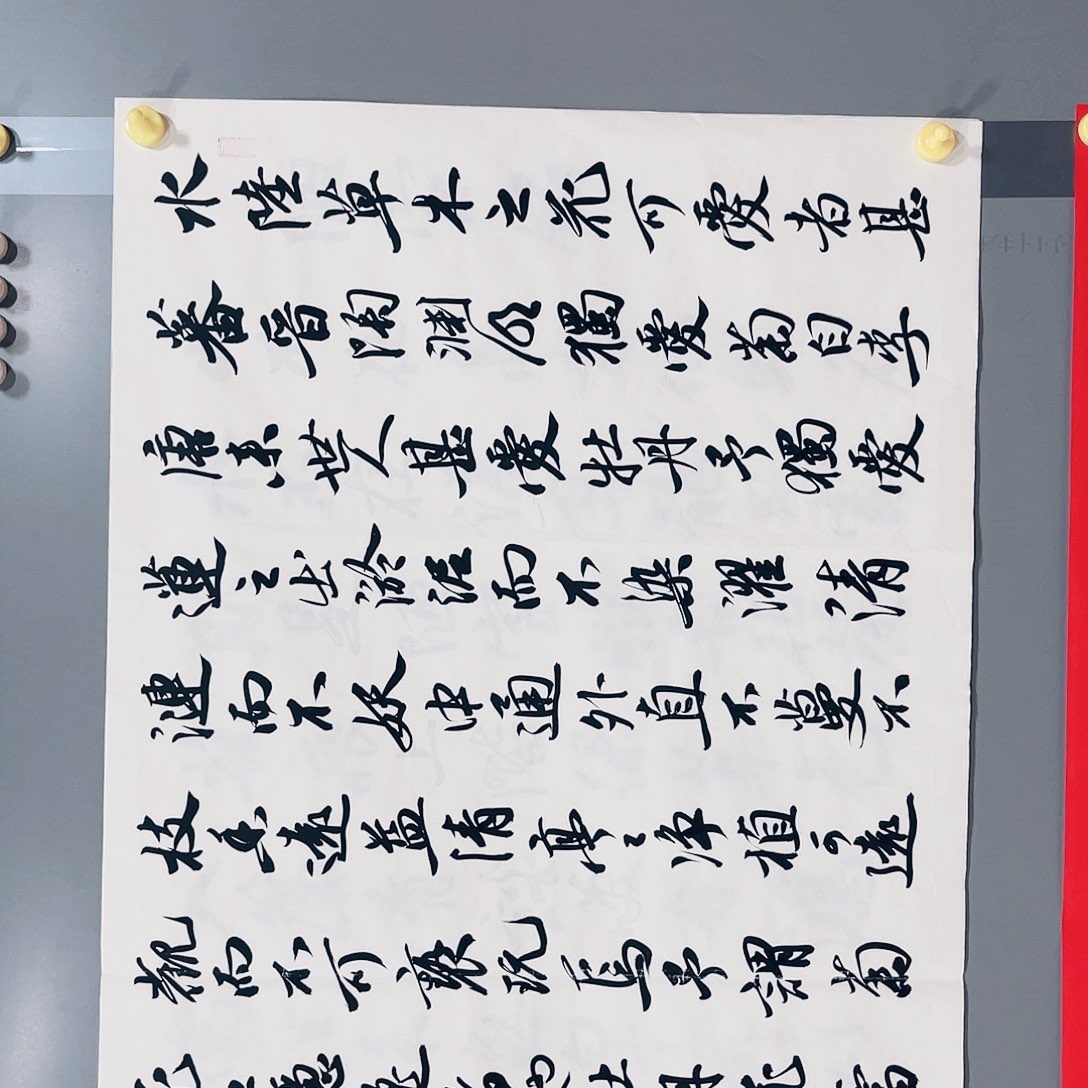 水陸草木之花可愛者甚
蕃晉陶淵明獨愛菊自李
唐來世人甚愛牡丹予獨愛
蓮之出淤泥而不染濯清
漣而不妖中通外直不蔓不
枝香遠益清亭〻淨植可遠
觀而不可褻玩焉予謂菊